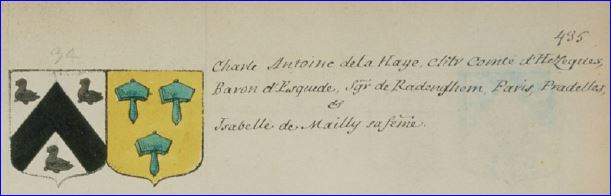 435
34
Charle Antoine dela Haye, Chlr Comte d'Hezeques,
Baron d'Esquede, Sgr de Radenghem, Paris, Pradelles,
&
Isabelle de Mailly sa feme.